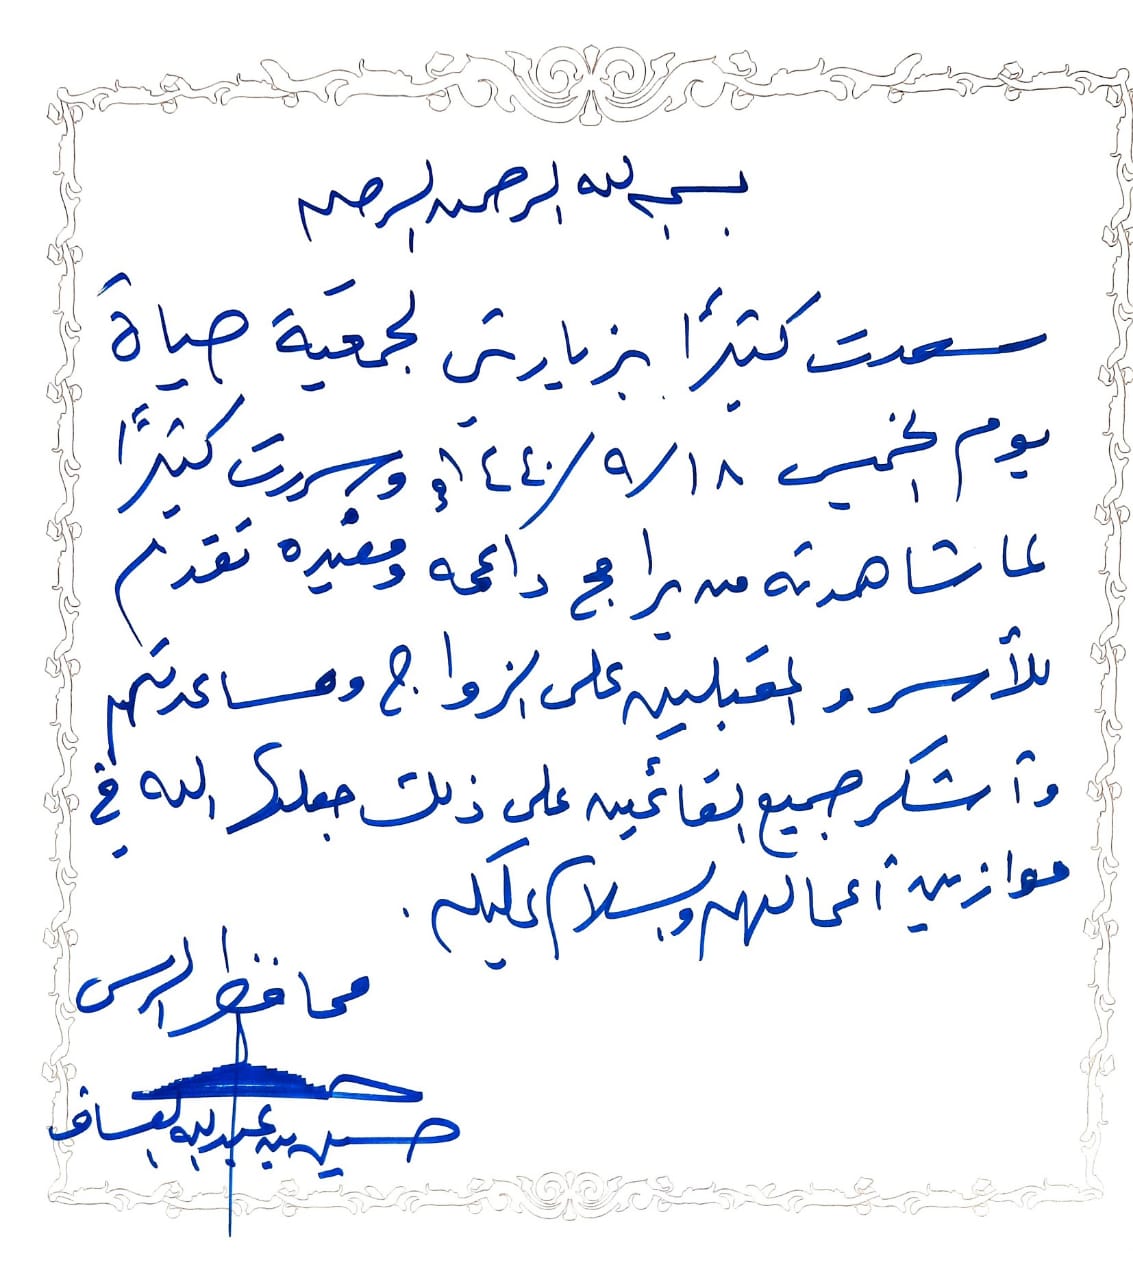 بسم الله الرحمن الرحيم
سعدت كثيرًا بزيارتي لجمعية حياة
يوم الخميس ١٨/٩/١٤٤٠هـ وسررت كثيرًا
لما شاهدته من برامج داعمه ومفيده تقدم
للأسر والمقبلين على الزواج ومساعدتهم
وأشكر جميع القائمين على ذلك جعلها الله في
موازين أعمالهم والسلام عليكم.
محافظ الرس
حسين بن عبدالله العساف